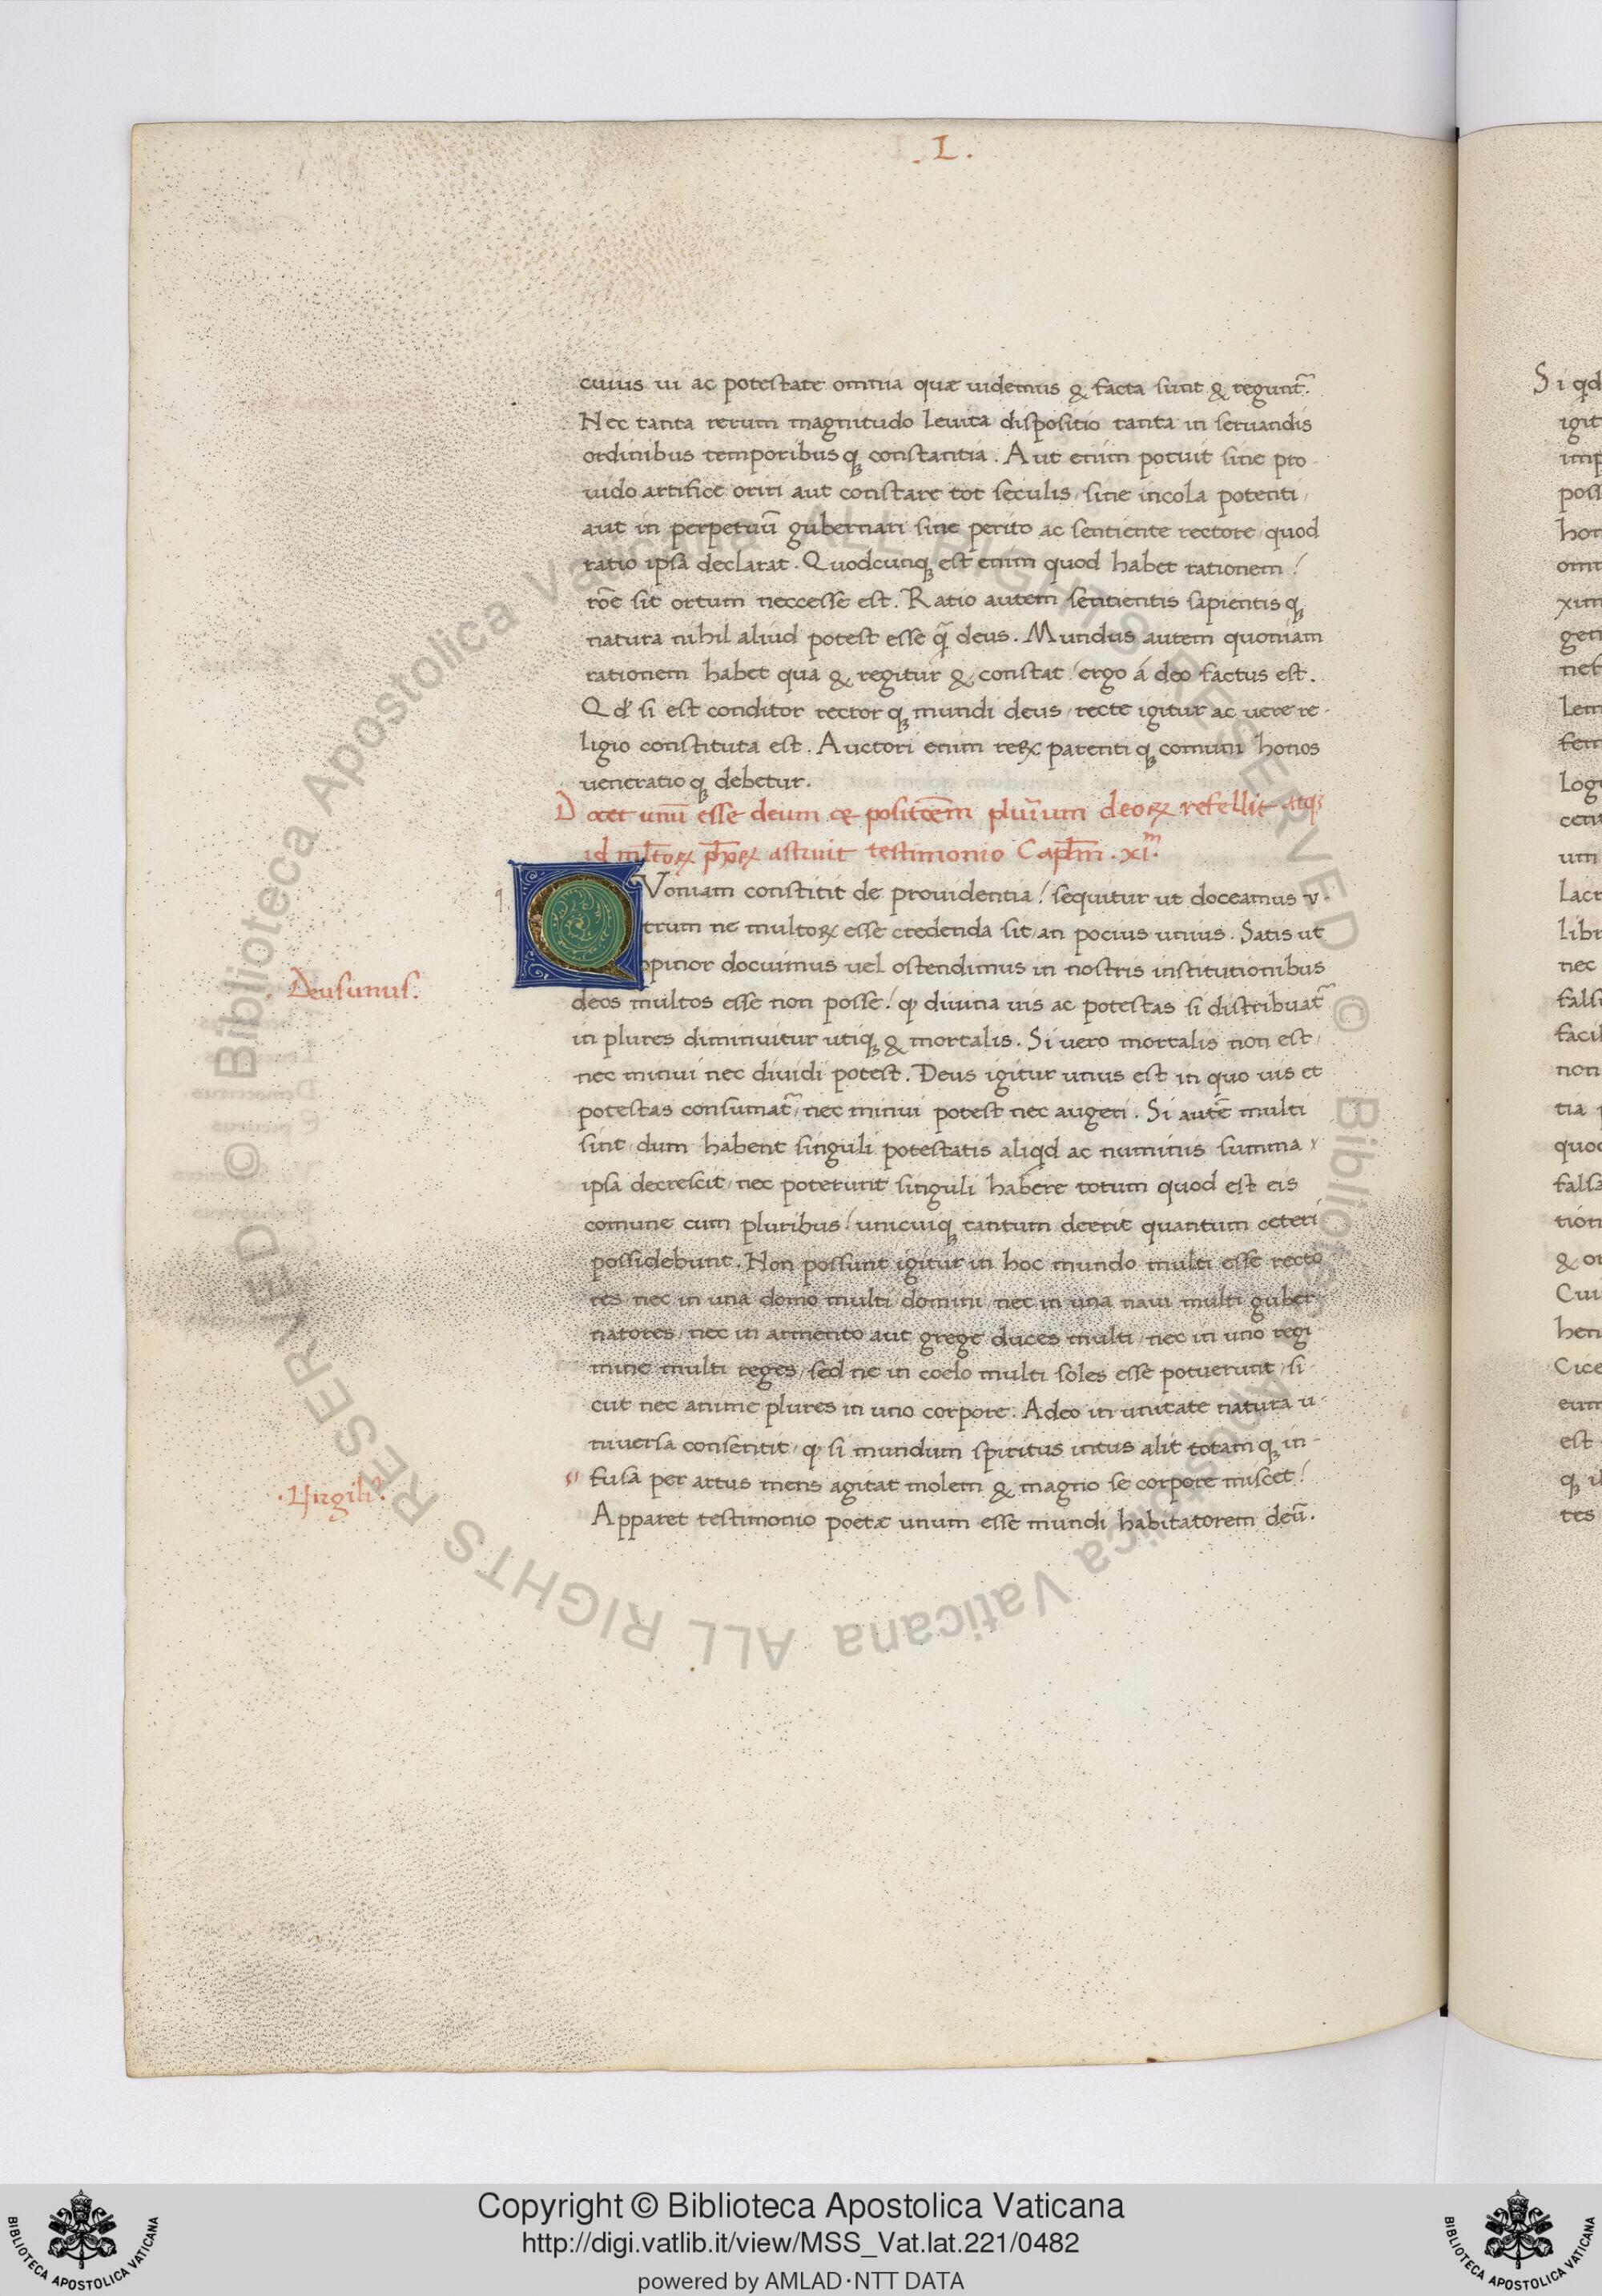 . L .
cuius ui ac potestate omnia quæ uidemus & facta sunt & regunt᷑.
Nec tanta rerum magnitudo leuita dispositio tanta in seruandis
ordinibus temporibusqꝫ constantia. Aut enim potuit sine pro-
uido artifice oriri aut constare tot seculis/ sine incola potenti/
aut in perpetuū gubernari sine perito ac sentiente rectore/ quod
ratio ipsa declarat. Quodcunqꝫ est enim quod habet rationem/
rōe sit ortum neccesse est. Ratio autem sentientis sapientisqꝫ
natura nihil aliud potest esse q̄ deus. Mundus autem quoniam
rationem habet qua & regitur & constat/ ergo á deo factus est.
Qđ si est conditor rectorqꝫ mundi deus/ recte igitur ac uere re-
ligio constituta est. Auctori enim reꝝ parentiqꝫ comuni honos
ueneratioqꝫ debetur.
Docet unū esse deum positōem deoꝝ refellit atqꝫ
id astruit testimonio Capłm .xiᵐ.
QVoniam constitit de prouidentia/ sequitur ut doceamus v-
trum ne multoꝝ esse credenda sit/ an pocius unius. Satis ut
opinor docuimus uel ostendimus in nostris institutionibus
Deus unus.
deos multos esse non posse/ ꝙ diuina uis ac potestas si distribuat᷑
in plures diminuitur utiqꝫ & mortalis. Si uero mortalis non est/
nec minui nec diuidi potest. Deus igitur unus est in quo uis et
potestas consumat᷑/ nec minui potest nec augeri. Si autē multi
sint/ dum habent singuli potestatis aliqd ac numinis summa
ipsa decrescit/ nec poterunt singuli habere totum quod est eis
comune cum pluribus/ unicuiqꝫ tantum deerit quantum ceteri
possidebunt. Non possunt igitur in hoc mundo multi esse recto-
res/ nec in una domo multi domini/ nec in una naui multi guber-
natores/ nec in armento aut grege duces multi/ nec in uno regi-
mine multi reges/ sed ne in coelo multi soles esse potuerunt/ si-
cut nec anime plures in uno corpore. Adeo in unitate natura u-
niuersa consentit/ ꝙ si mundum spiritus intus alit totamqꝫ in-
" fusa per artus mens agitat molem & magno se corpore miscet/
·Uirgili᷒.
Apparet testimonio poetæ unum esse mundi habitatorem deū.
Si qd
igit
imp
poss
hon
omn
xim
gen
nes
lem
fem
log
cen
um
lact
libr
nec
fals
facil
non
tia
quod
falsa
tion
& or
Cui
hen
Cice
eum
est
qꝫ
tes
© Biblioteca Apostolica Vaticana ALL RIGHTS RESERVED © Biblioteca Apostolica Vaticana ALL RIGHTS RESERVED
Copyright © Biblioteca Apostolica Vaticana
http://digi.vatlib.it/view/MSS_Vat.lat.221/0482
powered by AMLAD·NTT DATA
BIBLIOTECA APOSTOLICA VATICANA
BIBLIOTECA APOSTOLICA VATICANA